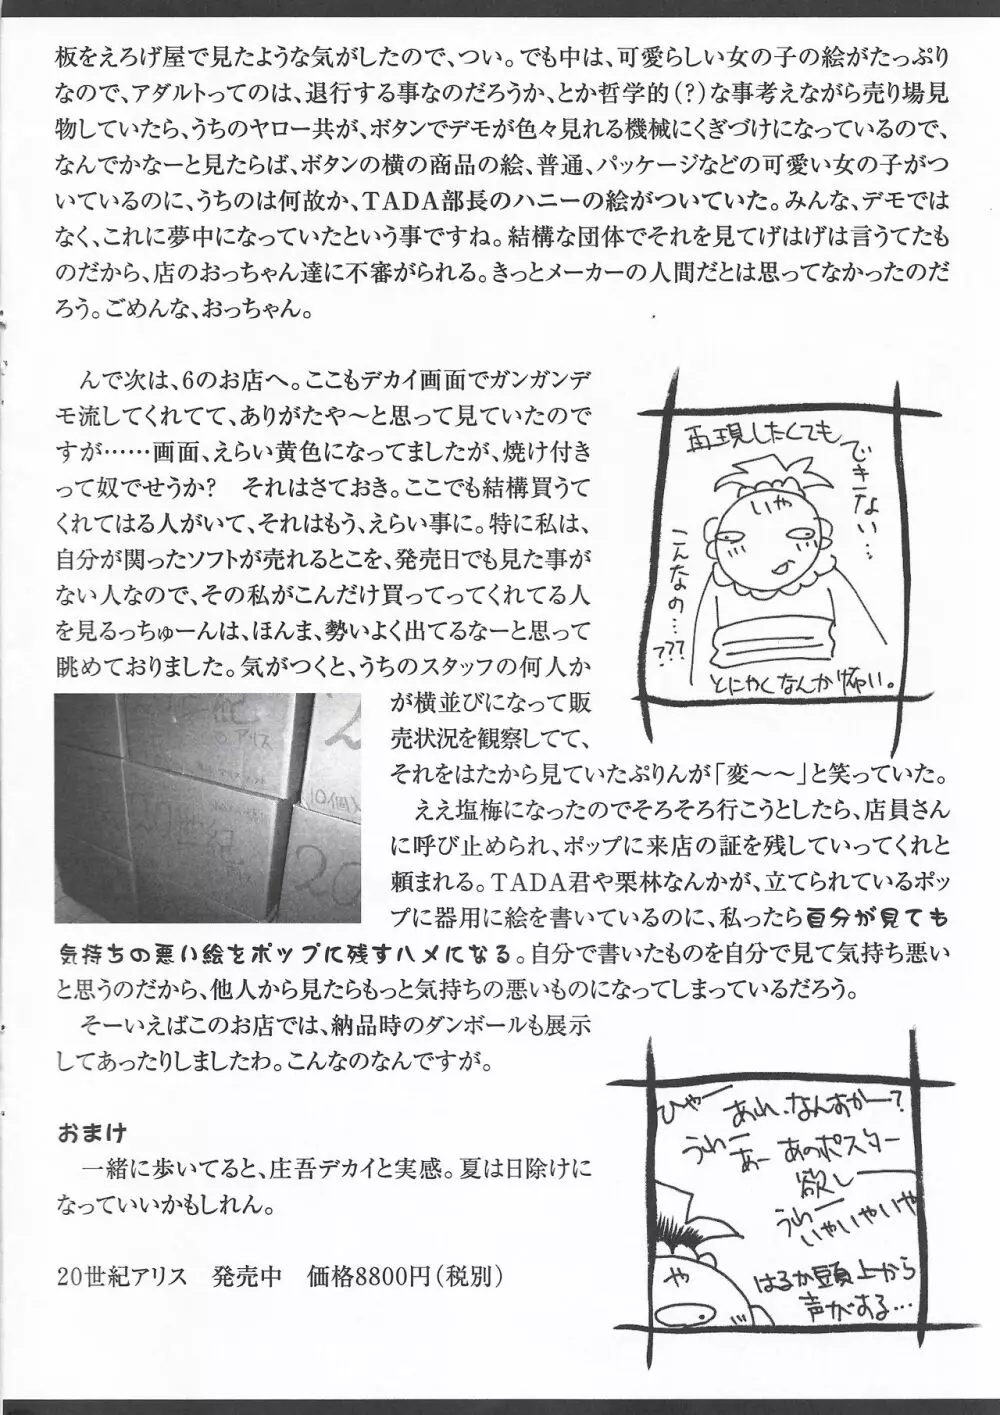 板をえろげ屋で見たような気がしたので、つい。でも中は、可愛らしい女の子の絵がたっぷり
なので、アダルトってのは、退行する事なのだろうか、とか哲学的(?)な事考えながら売り場見
物していたら、うちのヤロー共が、ボタンでデモが色々見れる機械にくぎづけになっているので、
なんでかなーと見たらば、ボタンの横の商品の絵、普通、パッケージなどの可愛い女の子がつ
いているのに、うちのは何故か、TADA部長のハニーの絵がついていた。みんな、デモでは
なく、これに夢中になっていたという事ですね。結構な団体でそれを見てげはげは言うてたも
のだから、店のおっちゃん達に不審がられる。きっとメーカーの人間だとは思ってなかったのだ
ろう。ごめんな、おっちゃん。
んで次は、6のお店へ。ここもデカイ画面でガンガンデ
モ流してくれてて、ありがたや〜と思って見ていたので
すが……画面、えらい黄色になってましたが、焼け付き
って奴でせうか?　それはさておき。ここでも結構買うて
くれてはる人がいて、それはもう、えらい事に。特に私は、
自分が関ったソフトが売れるとこを、発売日でも見た事が
ない人なので、その私がこんだけ買ってってくれてる人
を見るっちゅーんは、ほんま、勢いよく出てるなーと思って
眺めておりました。気がつくと、うちのスタッフの何人か
が横並びになって販
売状況を観察してて、
それをはたから見ていたぷりんが「変〜〜」と笑っていた。
ええ塩梅になったのでそろそろ行こうとしたら、店員さん
に呼び止められ、ポップに来店の証を残していってくれと
頼まれる。TADA君や栗林なんかが、立てられているポッ
プに器用に絵を書いているのに、私ったら自分が見ても
気持ちの悪い絵をポップに残すハメになる。自分で書いたものを自分で見て気持ち悪い
と思うのだから、他人から見たらもっと気持ちの悪いものになってしまっているだろう。
そーいえばこのお店では、納品時のダンボールも展示
してあったりしましたわ。こんなのなんですが。
再現したくても
できない…
いや
こんなの…
???
とにかくなんか怖い。
アリス
20
おまけ
一緒に歩いてると、庄吾デカイと実感。夏は日除けに
なっていいかもしれん。
20世紀アリス　発売中　価格8800円(税別)
ひゃー
あれ、なんすかー?
うわー
あー あのポスター
欲しー
うわー
いやいやいや
や
はるか頭上から
声がする…